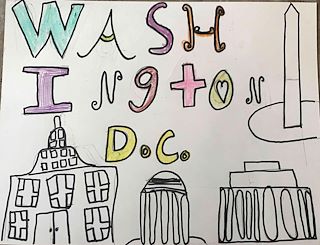 WASH
INgtoN
D.C.